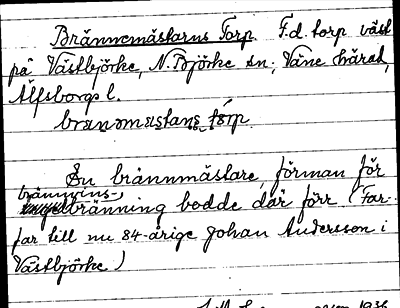 Brännemästarns Torp. F.d. torp väst
på Västbjörke, N. Björke sn; Väne härad,
Älfsborgs l.
brænəmæstaɳs tɔ́rp
En brännmästare, förman för
brännvins-
bränning bodde där förr (Far-
far till nu 84-årige Johan Andersson i
Västbjörke)
1936